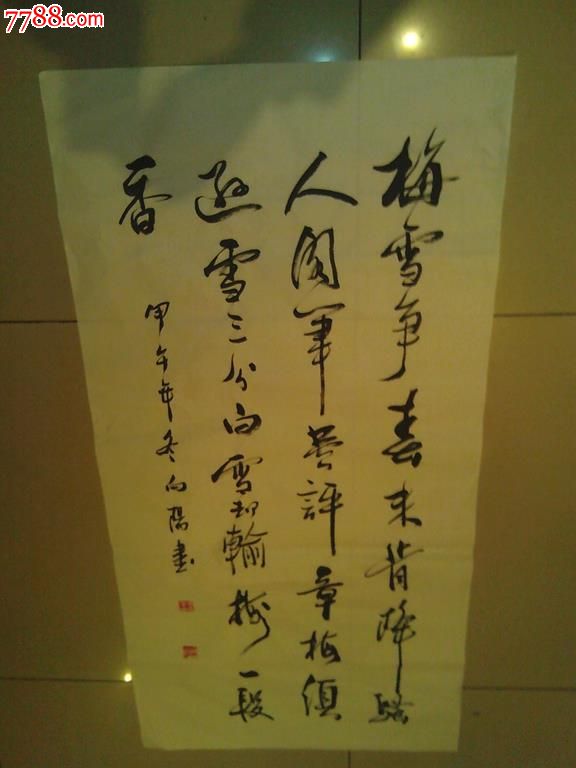 7788.com
梅雪争春未肯降骚
人阁筆费評章梅须
逊雪三分白雪却輸梅一段
香
甲午年冬向陽書